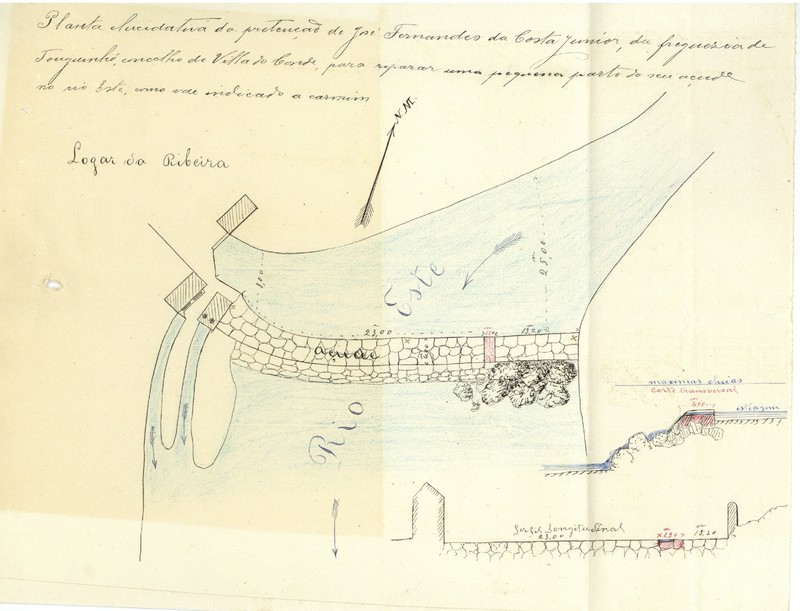 Planta elucidativa da pretenção de José Fernandes da Costa Junior, da freguezia de
Touguinhó, concelho de Villa do Conde, para reparar uma pequena parte do seu açude
no rio Este, como vae indicado a carmim
N.M.
Logar da Ribeira
Este
25,00
23,00
13,20
açude
Rio
maximas cheias
corte transversal
estiagem
Perfil Longitudinal
23,00
1,50
13,20